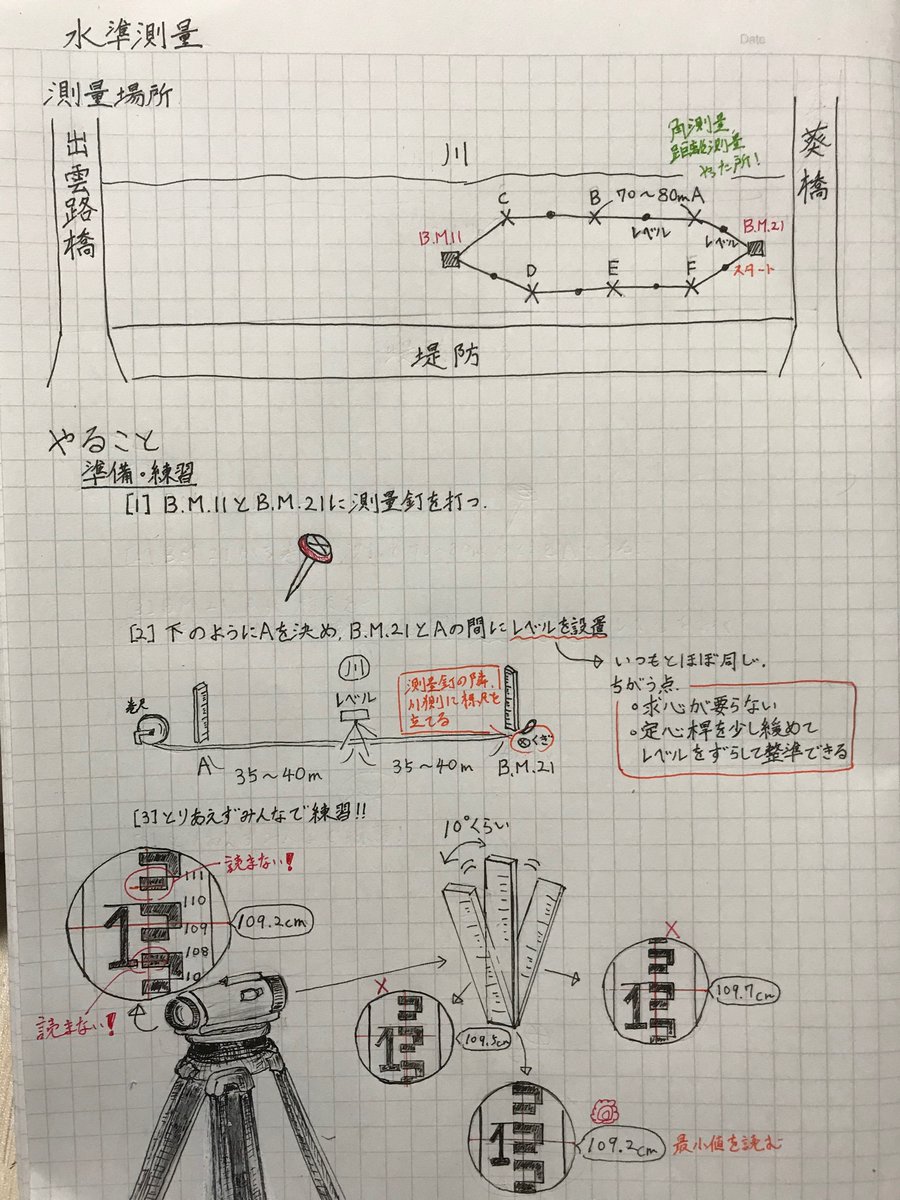 水準測量
Date
測量場所
出雲路橋
川
角測量、
距離測量
やった所!
葵橋
C
B
70～80m
A
レベル
レベル
B.M.21
スタート
B.M.11
D
E
F
堤防
やること
準備・練習
[1] B.M.11とB.M.21に測量釘を打つ.
[2] 下のようにAを決め, B.M.21とAの間にレベルを設置
いつもとほぼ同じ.
ちがう点
○求心が要らない
○定心桿を少し緩めて
レベルをずらして整準できる
川
レベル
測量釘の隣,
川側に標尺を
立てる
巻尺
くぎ
A
35～40m
35～40m
B.M.21
[3] とりあえずみんなで練習!!
10°くらい
読まない!
111
110
109
108
10
1
109.2cm
読まない!
109.5cm
109.7cm
109.2cm
最小値を読む